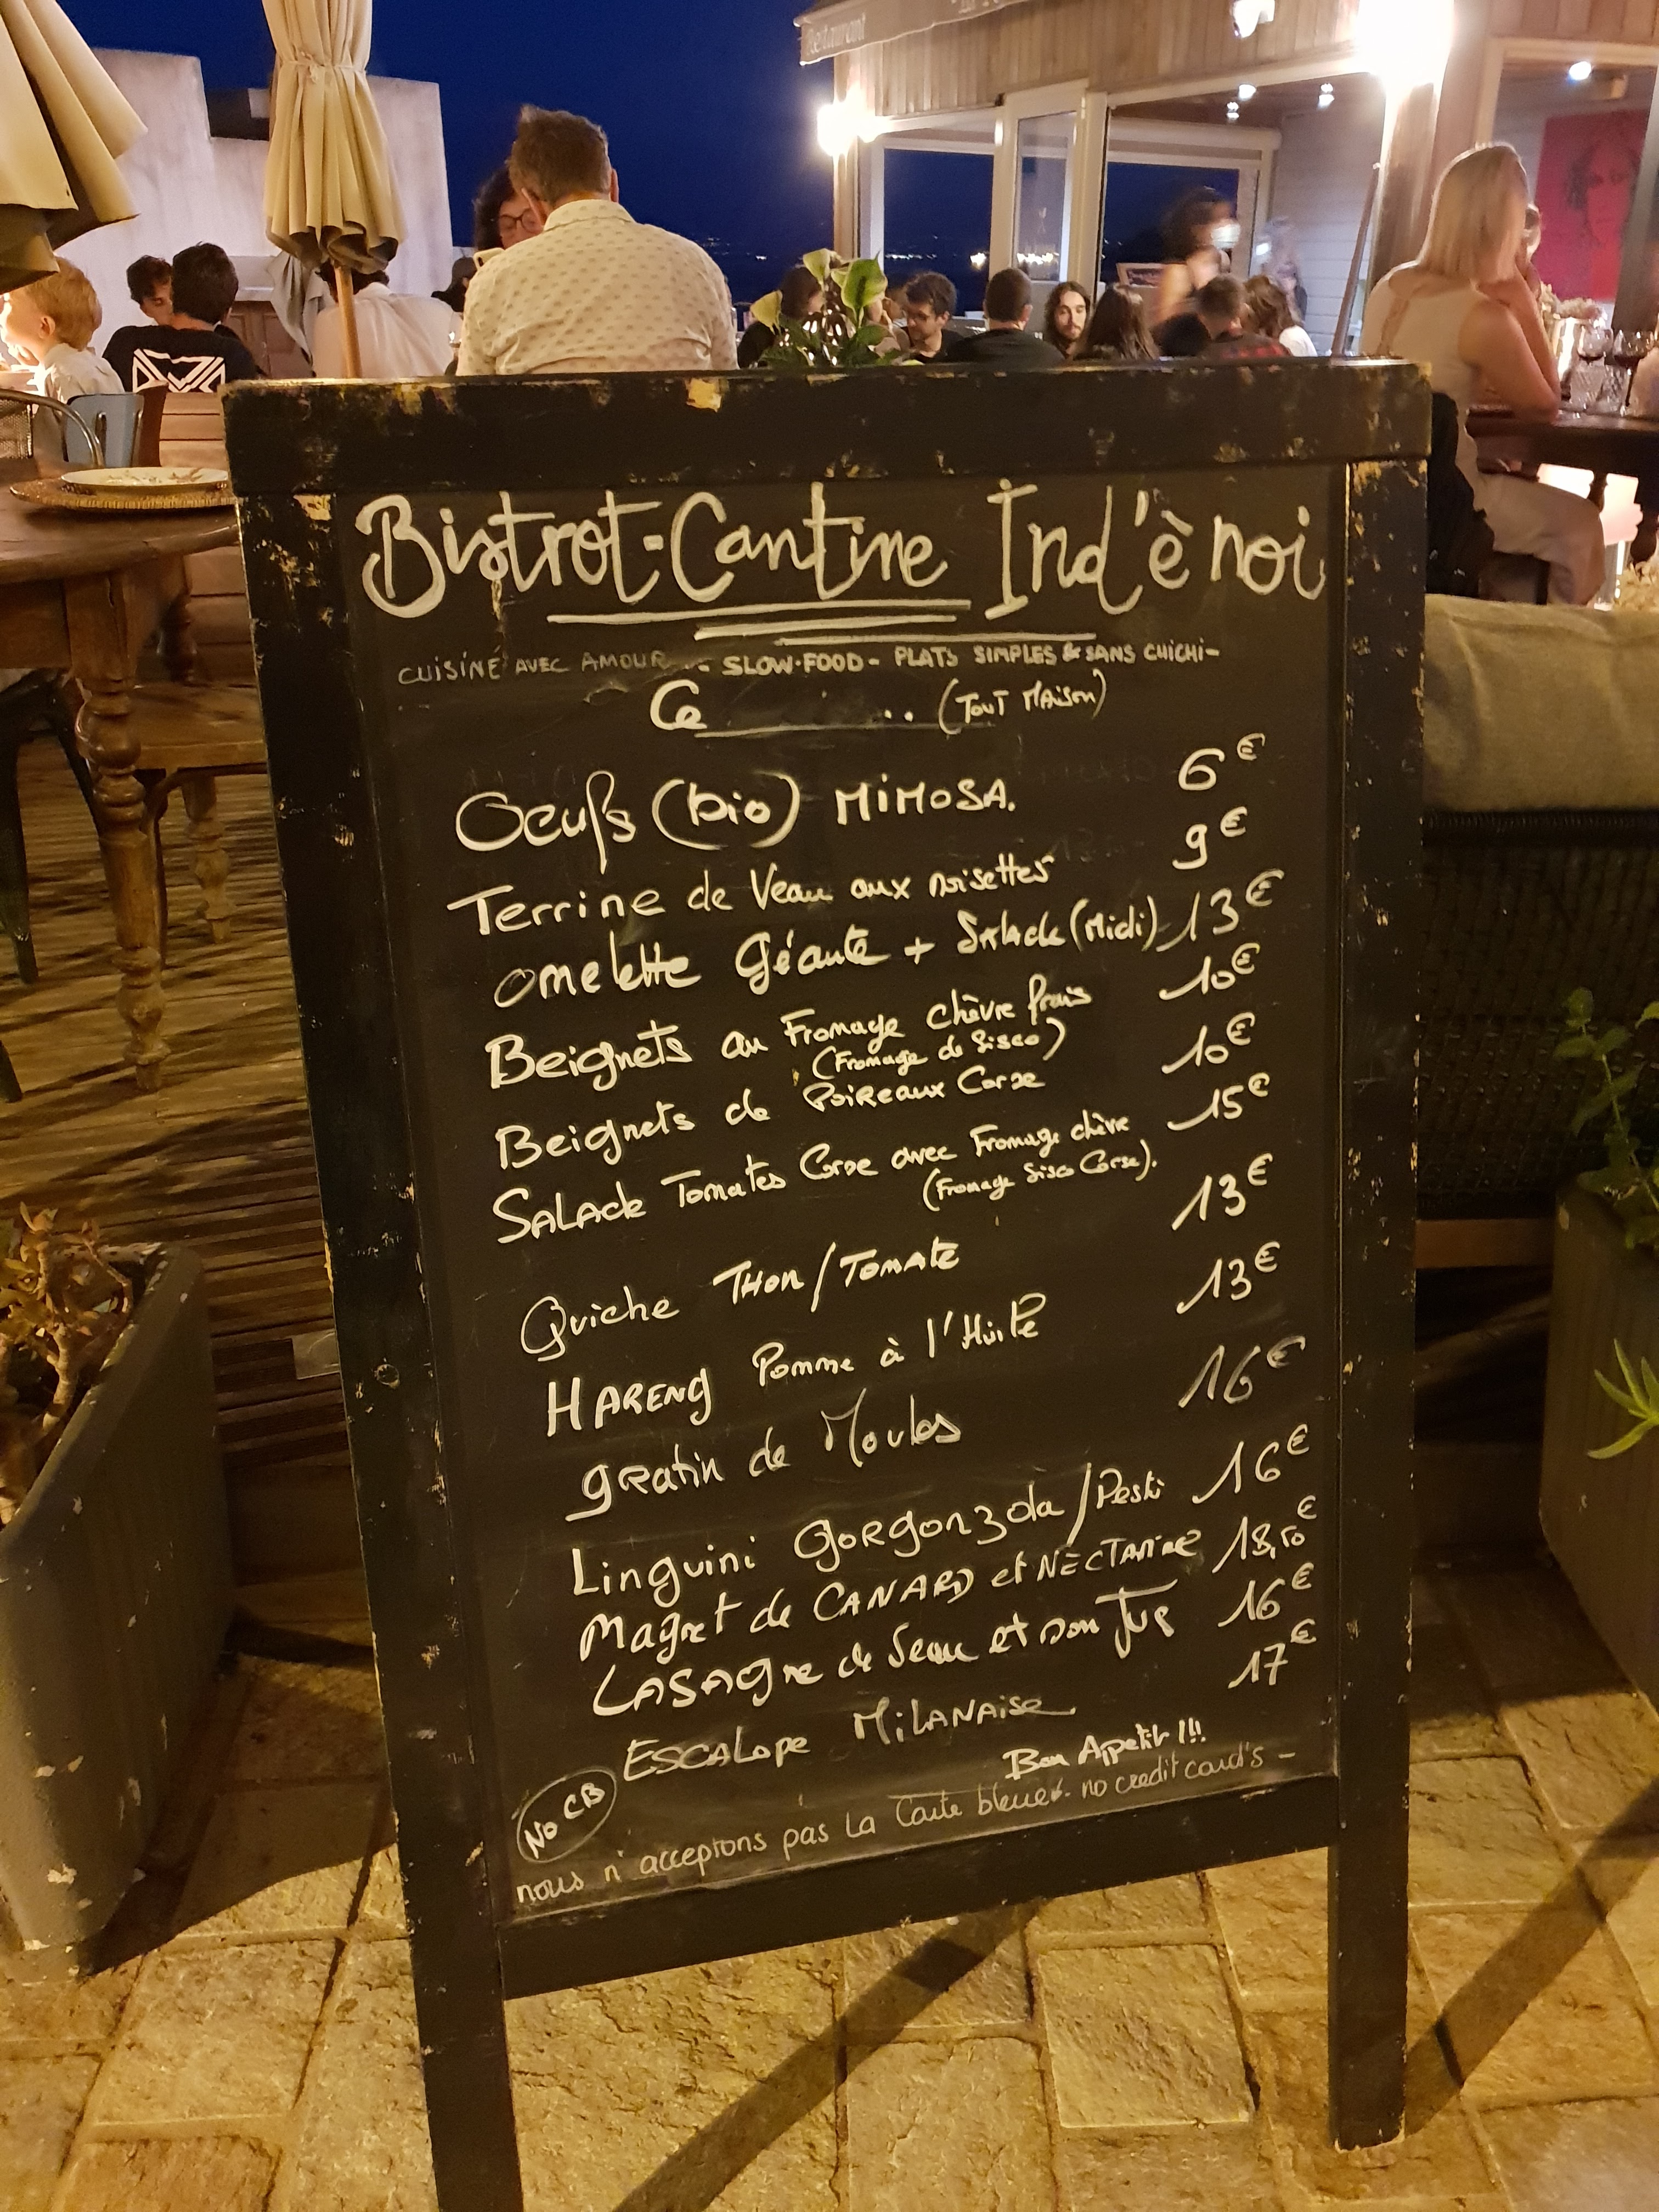 Restaurant
Bistrot-Cantine Ind'è noi
CUISINÉ AVEC AMOUR - SLOW-FOOD - PLATS SIMPLES & SANS CHICHI -
Ce .. (TOUT MAISON)
Oeufs (bio) MIMOSA. 6€
Terrine de Veau aux noisettes 9€
Omelette Géante + Salade (Midi) 13€
Beignets au Fromage chèvre frais 10€
(Fromage de Sisco)
Beignets de Poireaux Corse 10€
SALADE Tomates Corse avec Fromage chèvre 15€
(Fromage Sisco Corse).
Quiche THON/TOMATE 13€
HARENG Pomme à l'Huile 13€
gratin de Moules 16€
Linguini GORGONZOLA/Pesto 16€
Magret de CANARD et NECTARINE 18,50€
LASAGNE de Veau et son Jus 16€
ESCALOPE MILANAISE. 17€
Bon Appetit !!!
No CB
nous n'acceptons pas La Carte bleue - no credit card's -